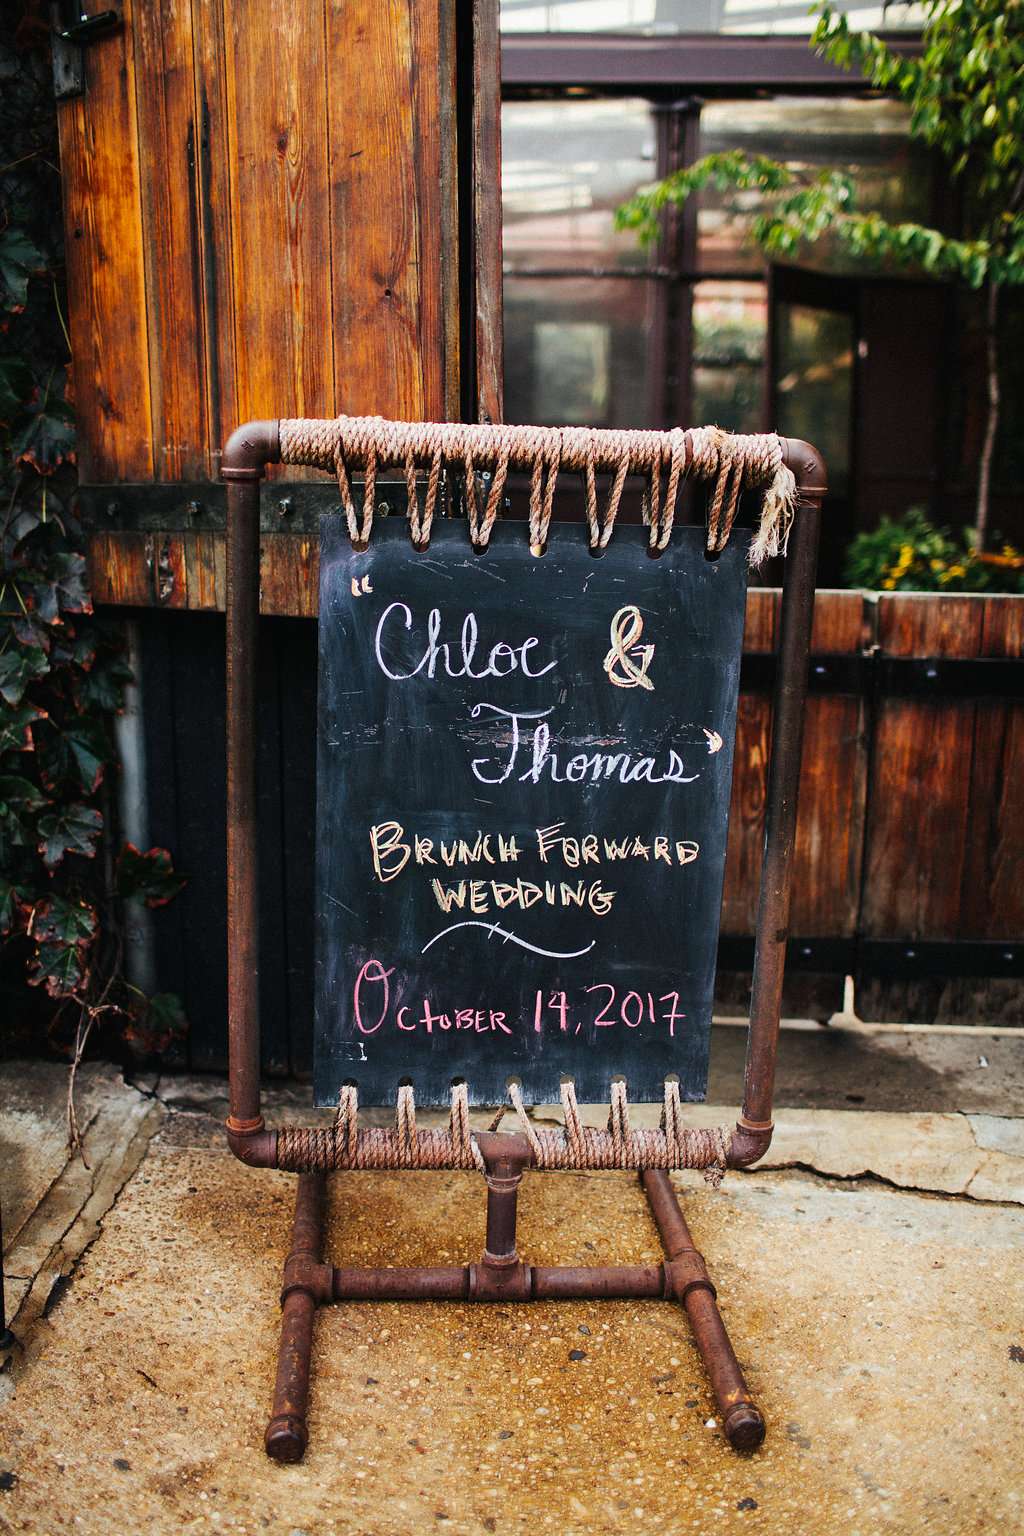 "Chloe &
Thomas"
BRUNCH FORWARD
WEDDING
OCTOBER 14, 2017